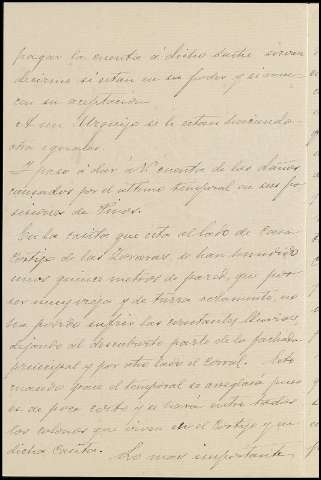 pagar la cuenta á dicho sastre sirva
decirme si estan en su poder y si mere-
cen su aceptacion.
A un Urquijo se le estan haciendo
otra iguales.
Y paso á dar á V. cuenta de los daños
causados por el ultimo temporal en sus po-
sesiones de Pinos.
En la casita que esta al lado de Casa
Cortijo de las Zorreras, se han hundido
unos quince metros de pared, que por
ser muy vieja y de tierra solamente, no
ha podido sufrir las constantes lluvias,
dejando al descubierto parte de la fachada
principal y por otro lado el corral. Esto
cuando pase el temporal se arreglará pues
es de poco costo y se hará entre todos
los colonos que viven en el Cortijo y en
dicha Casita. Lo mas importante